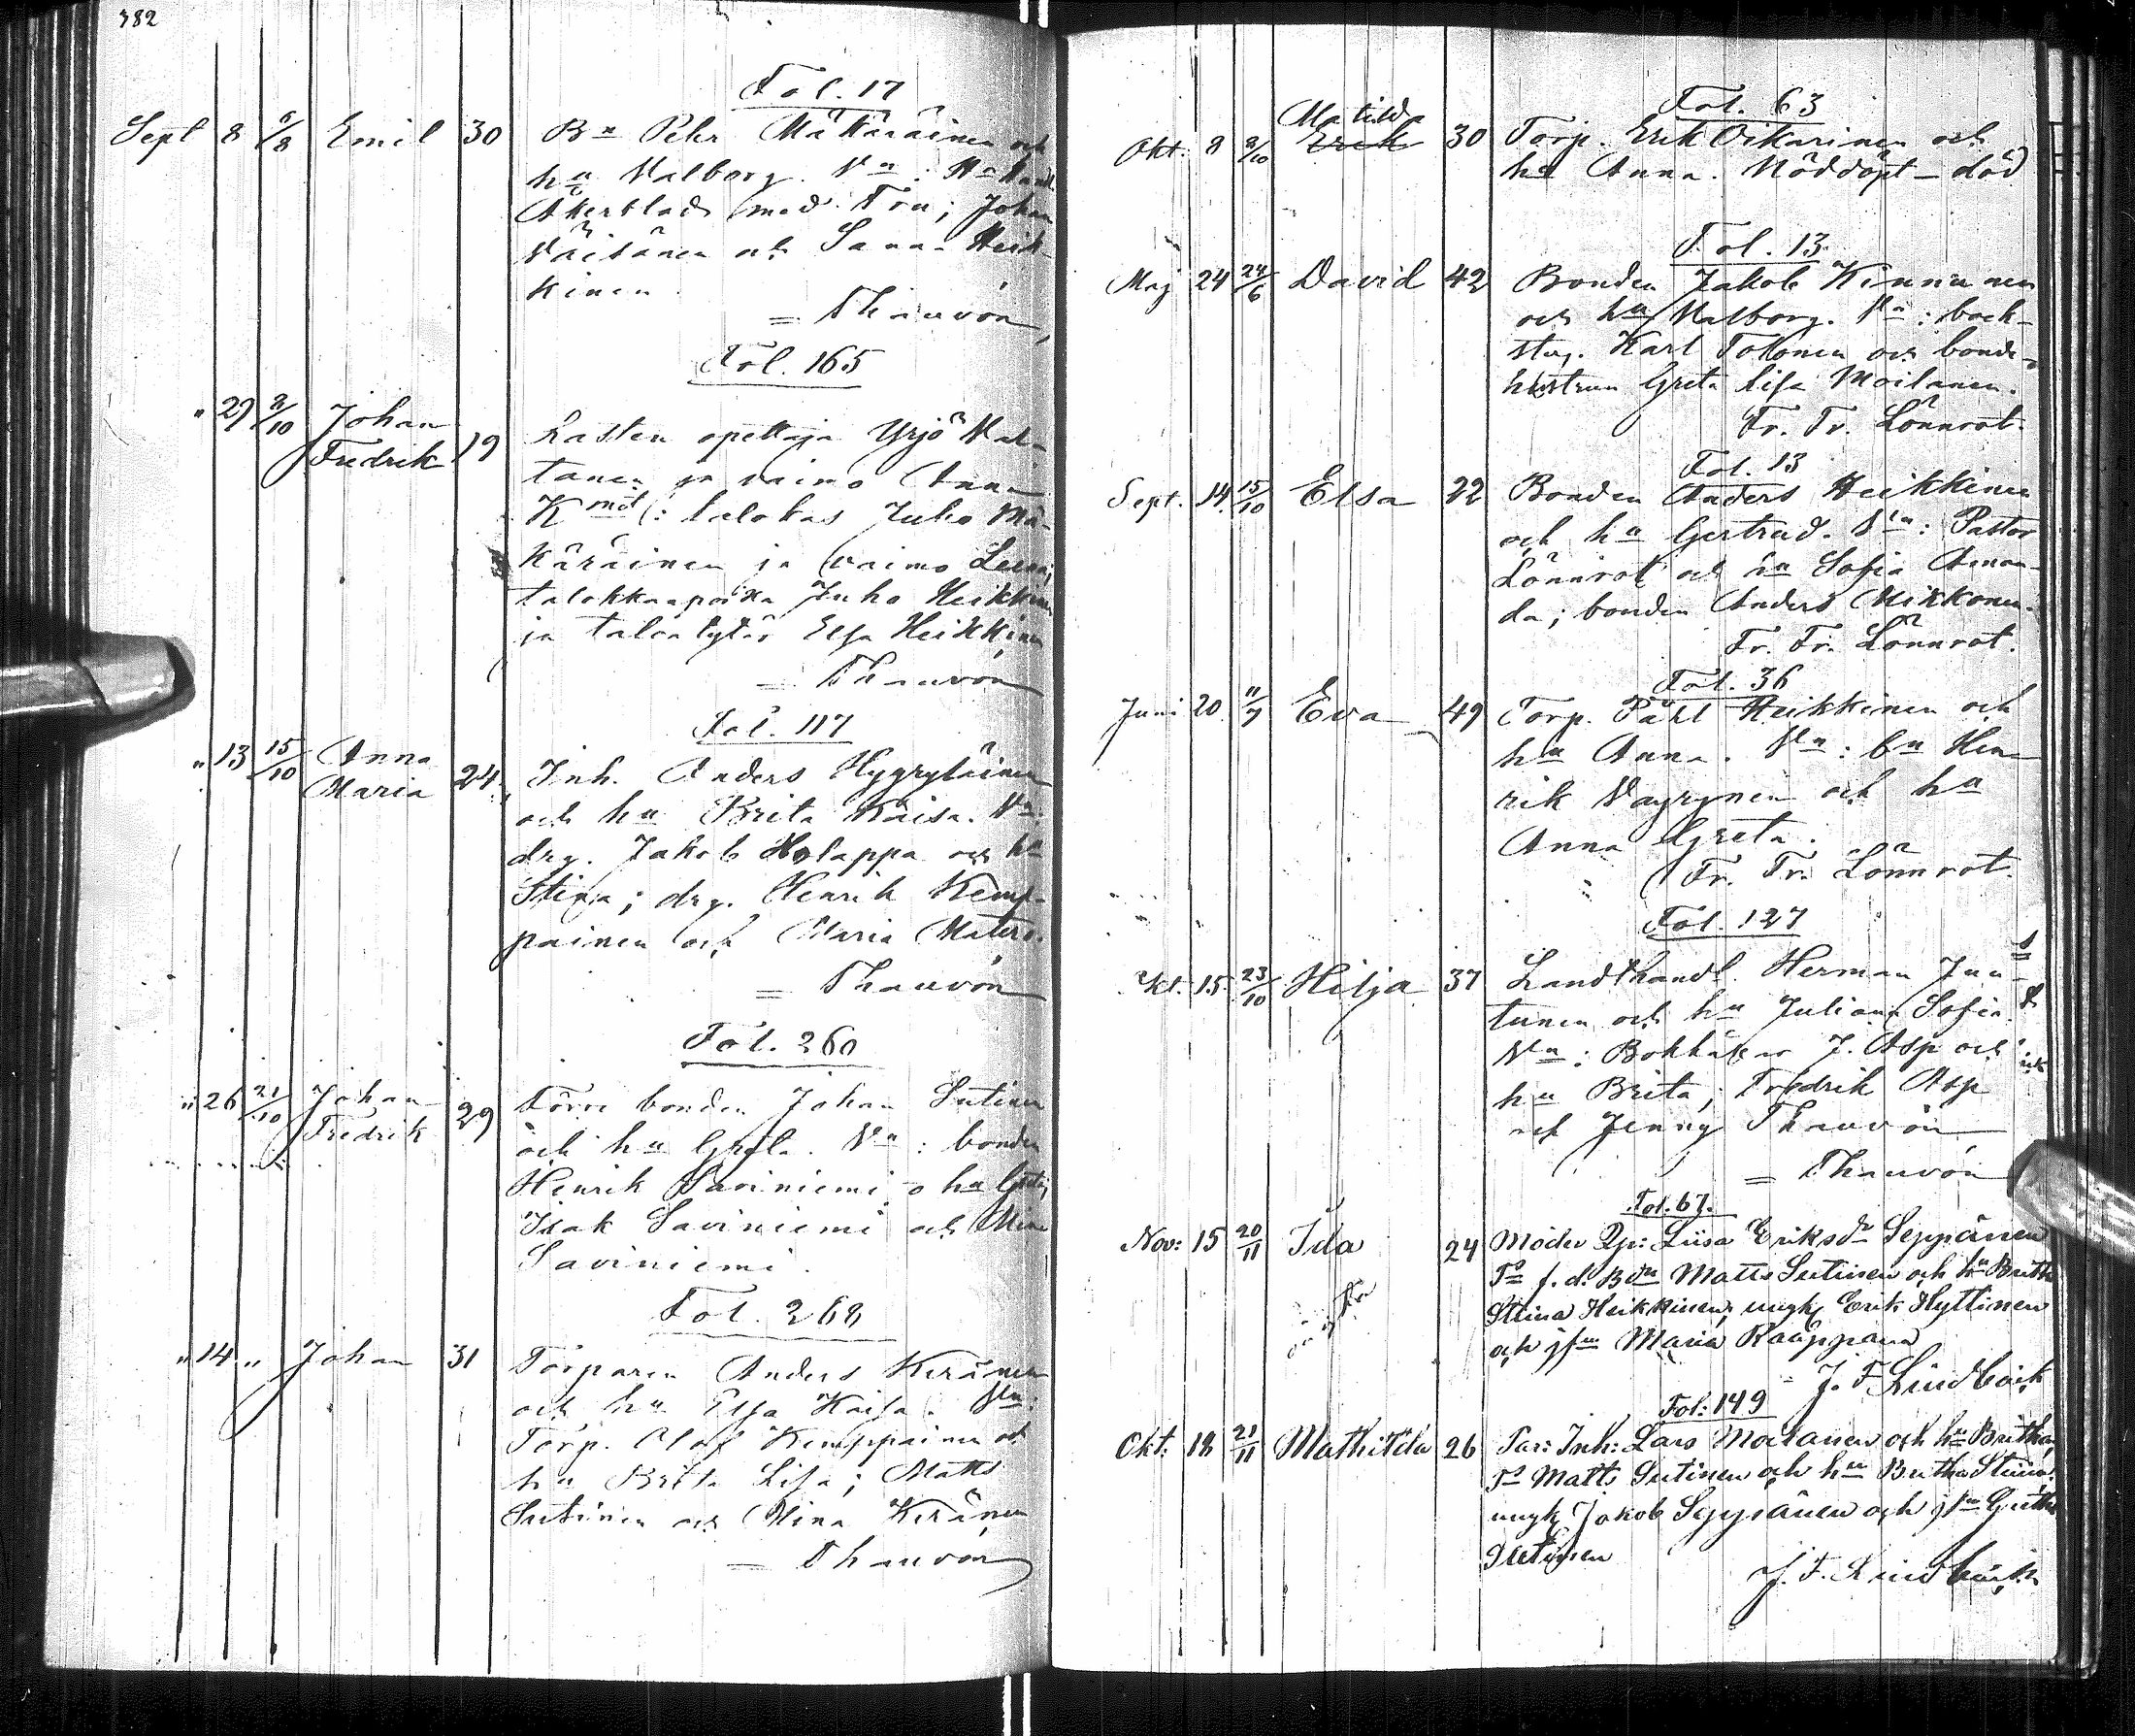 382
Fol. 17
Sept 8 6/8 Emil 30 Bn Pehr Mäkäräinen och
hu Walborg. Vn:
Åkerblad med Fru; Johan
Väisänen och Sanna Heik-
kinen
= Thauvón
Fol. 165
" 29 2/10 Johan Fredrik 19 Lasten opettaja Yrjö Val-
tanen ja vaimo Anna
Kmit: talokas Juho Mä-
käräinen ja vaimo Leena;
talokkaapoika Juho Heikkinen
ja talontytär Elsa Heikkinen
= Thauvón
Fol. 117
" 13 15/10 Anna Maria 24 Inh. Anders Hyyryläinen
och hu Brita Kaisa. Vn:
drg. Jakob Holappa och hu
Stina; drg. Henrik Kemp-
painen och Maria Matero.
= Thauvón
Fol. 260
" 26 21/10 Johan Fredrik 29 Förre bonden Johan Sutinen
och hu Greta. Vn: bonden
Henrik Saviniemi o hu Greta;
Isak Saviniemi och Mina
Saviniemi.
Fol. 268
" 14 " Johan 31 Torparen Anders Keränen
och hu Elsa Kaisa. Vn:
Torp. Olof Kemppainen och
hu Brita Lisa; Matts
Sutinen och Stina Keränen
= Thauvón
Fol. 63
Matilda
Okt. 8 8/10 Erik 30 Torp. Erik Oikarinen och
hu Anna. Nöddöpt - död
Fol. 13
Maj 24 24/6 David 42 Bonden Jakob Kinnunen
och hu Walborg. Vn: back-
stug. Karl Tolonen och bonde-
hustrun Greta Lisa Moilanen.
Fr. Fr. Lönnrot.
Fol. 13
Sept. 14 15/10 Elsa 22 Bonden Anders Heikkinen
och hu Gertrud. Vn: Pastor
Lönnrot och hu Sofia Aman-
da; bonden Anders Mikkonen.
Fr. Fr. Lönnrot.
Fol. 36
Juni 20 11/7 Eva 49 Torp. Påhl Heikkinen och
hu Anna. Vn: bn Hen-
rik Väyrynen och hu
Anna Greta.
Fr. Fr. Lönnrot.
Fol. 127
Okt. 15 23/10 Hilja 37 Landthandl. Herman Jun-
tunen och hu Juliana Sofia.
Vn: Bokhållar J. Asp och
hu Brita; Fredrik Asp
och Jenny Thauvón
= Thauvón
Fol. 67.
Nov: 15 20/11 Ida 24 Moder Pp: Liisa Eriksdr Seppänen
Ts f. d. Bdn Matts Sutinen och hu Britha
Stina Heikkinen, ungk Erik Hyttinen
och jfun Maria Kauppana
J. F. Lindbäck
Fol: 149
Okt: 18 21/11 Mathilda 26 Par: Inh: Lars Moilanen och hu Britha,
Ts Matts Sutinen och hu Britha Stiina
ungk Jakob Seppänen och jfn Gretha
Sutinen
J. F. Lindbäck